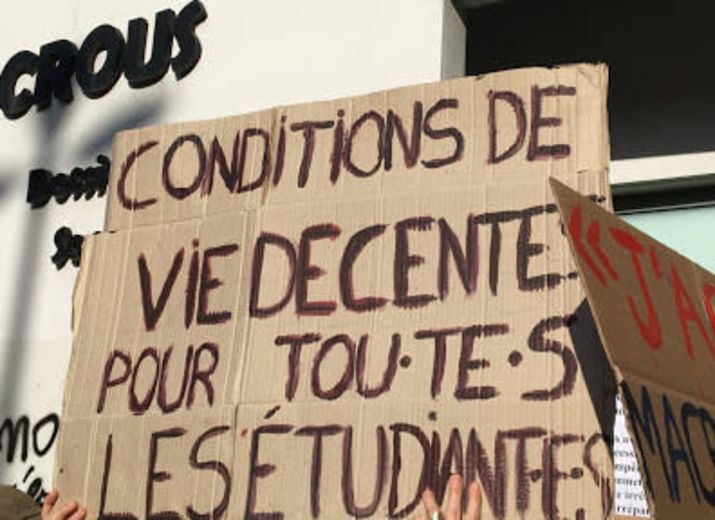 CROUS
CONDITIONS DE
VIE DECENTES
POUR TOU·TE·S
LES ÉTUDIANT·E·S
« J'A
MAC